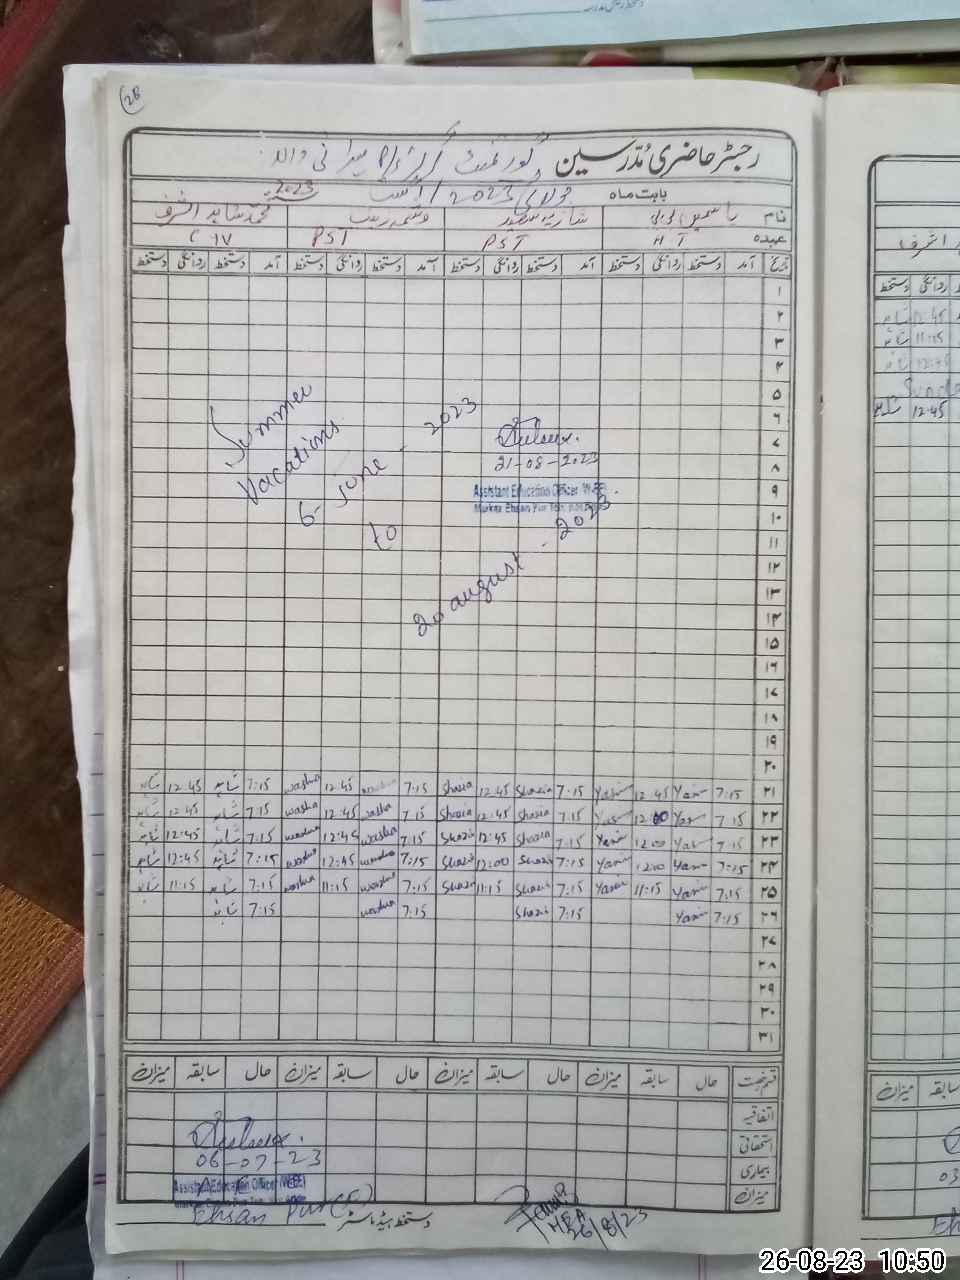 28
رجسٹر حاضری مدرسین گورنمنٹ
بابت ماہ جولائی 2023 / اگست 2023
نام یاسمین بی بی شازیہ منظور محمد شاہد اشرف
عہدہ HT PST PST
تاریخ آمد دستخط روانگی دستخط آمد دستخط روانگی دستخط آمد دستخط روانگی دستخط آمد دستخط روانگی دستخط
۱
۲
۳
۴
۵
۶
۷
۸
۹
۱۰
۱۱
۱۲
۱۳
۱۴
۱۵
۱۶
۱۷
۱۸
۱۹
۲۰
Summer
Vacations
6- June - 2023
to
20 august - 2023
21-08-2023
Assistant Education Officer (W-EE)
Markaz Ehsan Pur
۲۱ 7:15 Yasmin 12:45 Yasmin 7:15 Shazia 12:45 Shazia 7:15 washma 12:45 washma 7:15 شاہد 12:45 شاہد
۲۲ 7:15 Yasmin 12:00 Yasmin 7:15 Shazia 12:45 Shazia 7:15 washma 12:45 washma 7:15 شاہد 12:45 شاہد
۲۳ 7:15 Yasmin 12:00 Yasmin 7:15 Shazia 12:45 Shazia 7:15 washma 12:45 washma 7:15 شاہد 12:45 شاہد
۲۴ 7:15 Yasmin 12:00 Yasmin 7:15 Shazia 12:00 Shazia 7:15 washma 12:45 washma 7:15 شاہد 12:45 شاہد
۲۵ 7:15 Yasmin 11:15 Yasmin 7:15 Shazia 11:15 Shazia 7:15 washma 11:15 washma 7:15 شاہد 11:15 شاہد
۲۶ 7:15 Yasmin 7:15 Shazia 7:15 washma 7:15 شاہد
۲۷
۲۸
۲۹
۳۰
۳۱
قسم رخصت حال سابقہ میزان حال سابقہ میزان حال سابقہ میزان حال سابقہ میزان
اتفاقیہ
استحقاقی
بیماری
میزان
06-07-23
Assistant Education Officer (W-EE)
Ehsan Pur
دستخط ہیڈ ماسٹر
MEA
26/8/23
اشرف
روانگی دستخط
12:45 شاہد
11:15 شاہد
12:45 شاہد
Sunda
12:45 شاہد
سابقہ میزان
03
Eh
26-08-23 10:50